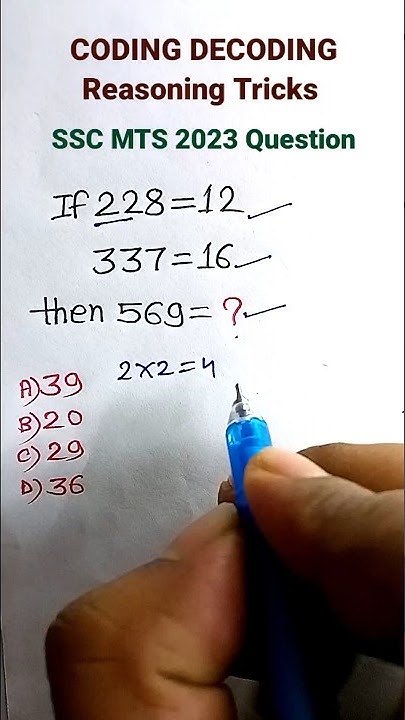 CODING DECODING
Reasoning Tricks
SSC MTS 2023 Question
If 228=12
337=16
then 569=?
2×2=4
A)39
B)20
C)29
D)36